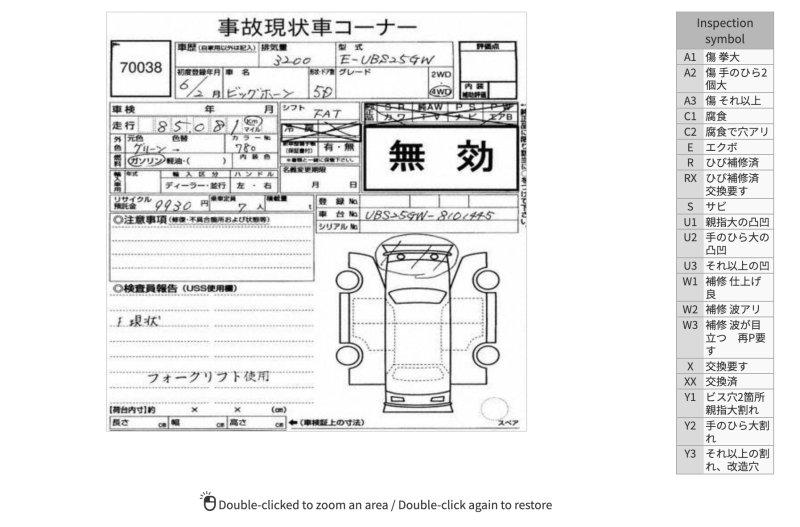 事故現状車コーナー
70038
車歴 (自家用以外は記入) 排気量 型式 評価点
3200 E-UBS25GW
初度登録年月 車名 形状・ドア数 グレード 2WD
6/2月 ビッグホーン 5D 4WD
内装
補助評価
車検 年 月 シフト FAT
走行 85,081 Km マイル 冷房
外色 元色 色替 カラーNo.
グリーン → 780 有・無
燃料 ガソリン・軽油・( ) 内装色
無効
名義変更期限
月 日
輸入車用 年式 輸入区分 ハンドル
ディーラー・並行 左・右
リサイクル預託金 9930円 乗車定員 7人 積載量 t
登録No.
車台No. UBS25GW-8101445
シリアルNo.
◎注意事項 (修復・不具合箇所および状態等)
◎検査員報告 (USS使用欄)
現状
フォークリフト使用
【荷台内寸】約 × × (cm)
長さ cm 幅 cm 高さ cm ←(車検証上の寸法)
スペア
Inspection
symbol
A1 傷 拳大
A2 傷 手のひら2
個大
A3 傷 それ以上
C1 腐食
C2 腐食で穴アリ
E エクボ
R ひび補修済
RX ひび補修済
交換要す
S サビ
U1 親指大の凸凹
U2 手のひら大の
凸凹
U3 それ以上の凹
W1 補修 仕上げ
良
W2 補修 波アリ
W3 補修 波が目
立つ 再P要
す
X 交換要す
XX 交換済
Y1 ビス穴2箇所
親指大割れ
Y2 手のひら大割
れ
Y3 それ以上の割
れ、改造穴
Double-clicked to zoom an area / Double-click again to restore